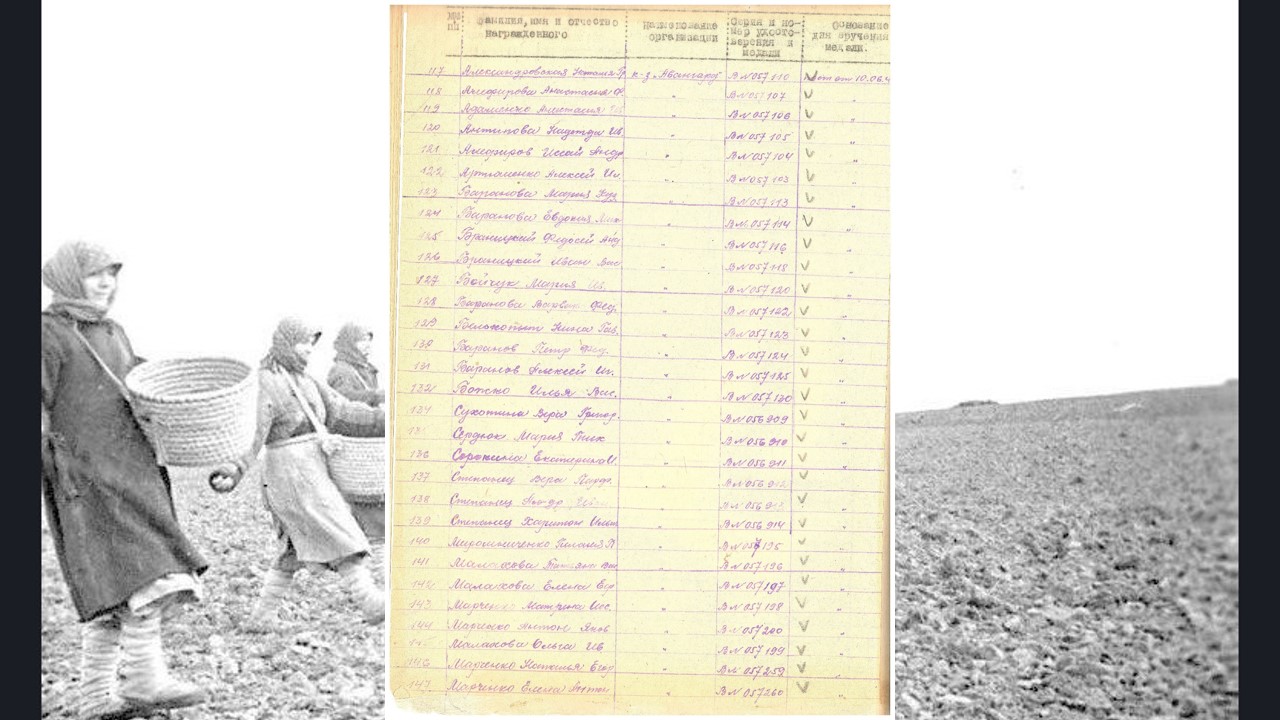 №№ пп Фамилия, имя и отчество награжденного Наименование организации Серия и номер удостоверения и медали Основание для вручения медали.
117 Александровская Наталия Гр к-з „Авангард" В №057110 от 10.06.4
118 Анфирова Анастасия Ф. " В №057107 "
119 Адаменко Анастасия " В №057106 "
120 Антипова Надежда Ив " В №057105 "
121 Анфиров Иссай Андр " В №057104 "
122 Артюшенко Алексей Ил. " В №057103 "
123 Баранова Мария " В №057113 "
124 Баранова Евдокия " В №057114 "
125 Браницкий Федосий Анд " В №057116 "
126 Браницкий Иван Вас " В №057118 "
127 Бойчук Мария Ив. " В №057120 "
128 Баранова Фед. " В №057122 "
129 Белокопыт Нина " В №057123 "
130 Баранов Петр Фед. " В №057124 "
131 Баранов Алексей Ил. " В №057125 "
132 Божко Илья Вас. " В №057130 "
134 Сухотина Вера Григор. " В №056909 "
Сердюк Мария Тих " В №056910 "
136 Сорокина Екатерина И. " В №056911 "
137 Степанец Вера " В №056912 "
138 Степанец " В №056 "
139 Степанец Харитон " В №056914 "
140 Мирошниченко " В №057195 "
141 Малахова " В №057196 "
142 Малахова Елена Егор " В №057197 "
143 Марченко Матрена Ис. " В №057198 "
144 Марченко Антон Яков " В №057200 "
Малахова Ольга Ив " В №057199 "
146 Марченко Наталья Егор " В №057259 "
147 Марченко Елена Анто " В №057260 "